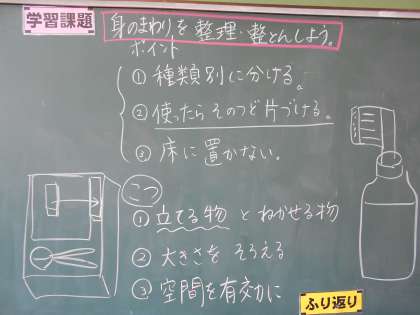 学習課題
身のまわりを整理・整とんしよう。
ポイント
① 種類別に分ける。
② 使ったらそのつど片づける。
③ 床に置かない。
こつ
① 立てる物とねかせる物
② 大きさをそろえる
③ 空間を有効に
ふり返り